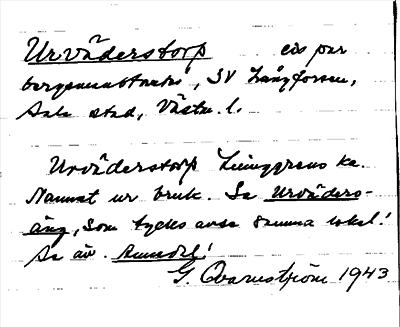 Urväderstorp
bergsmansta, SV Långforsen,
Sala stad, Västm. l.
Urväderstorp Liunggrens ka.
Namnet ur bruk. Se Urväders-
äng, som tycks avse samma lokal!
Se äv.
G. Qvarnström 1943